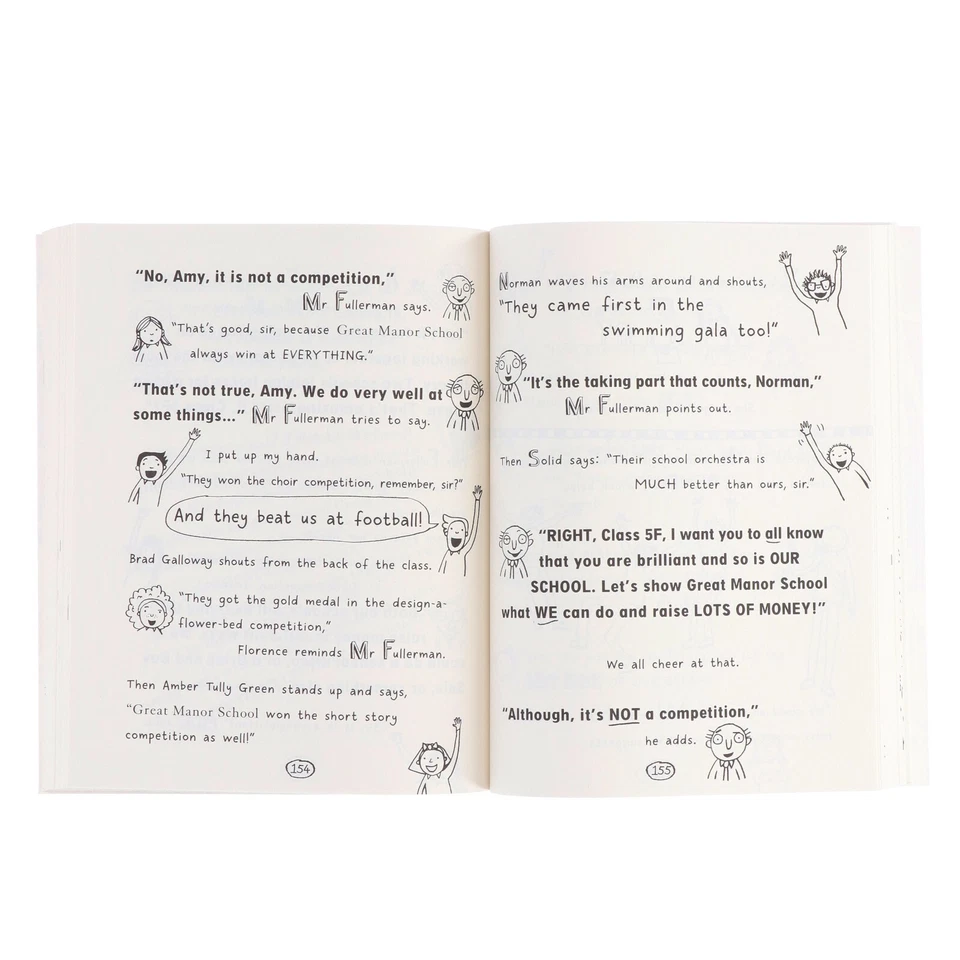 “No, Amy, it is not a competition,”
Mr Fullerman says.
“That’s good, sir, because Great Manor School
always win at EVERYTHING.”
“That’s not true, Amy. We do very well at
some things...” Mr Fullerman tries to say.
I put up my hand.
“They won the choir competition, remember, sir?”
And they beat us at football!
Brad Galloway shouts from the back of the class.
“They got the gold medal in the design-a-
flower-bed competition,”
Florence reminds Mr Fullerman.
Then Amber Tully Green stands up and says,
“Great Manor School won the short story
competition as well!”
154
Norman waves his arms around and shouts,
“They came first in the
swimming gala too!”
“It’s the taking part that counts, Norman,”
Mr Fullerman points out.
Then Solid says: “Their school orchestra is
MUCH better than ours, sir.”
“RIGHT, Class 5F, I want you to all know
that you are brilliant and so is OUR
SCHOOL. Let’s show Great Manor School
what WE can do and raise LOTS OF MONEY!”
We all cheer at that.
“Although, it’s NOT a competition,”
he adds.
155